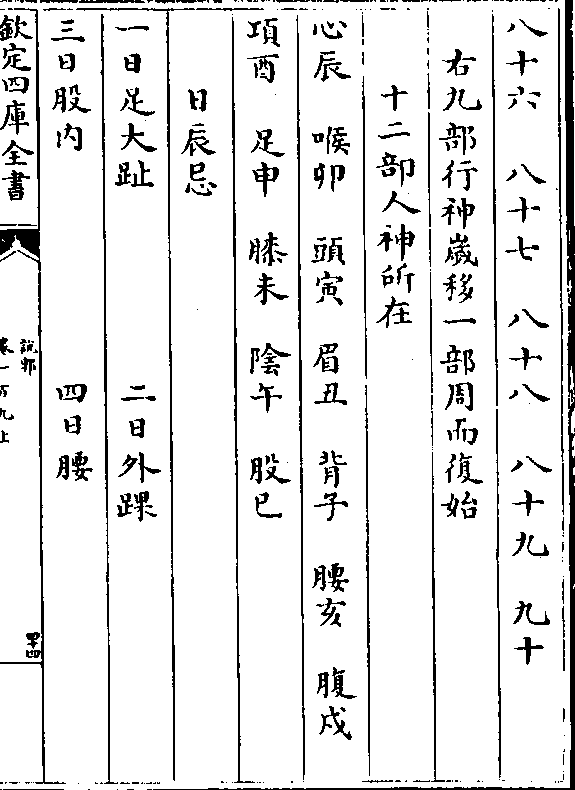 八十六 八十七 八十八 八十九 九十
右九部行神歲移一部周而復始
十二部人神所在
心辰 喉卯 頭寅 眉丑 背子 腰亥 腹戌
項酉 足申 膝未 陰午 股巳
日辰忌
一日足大趾 二日外踝
三日股内 四日腰
欽定四庫全書
說郛
卷一百九上
四十四